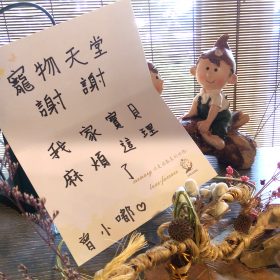 寵物天堂
謝謝
我家寶貝
麻煩這理
了
曾小嘟♡